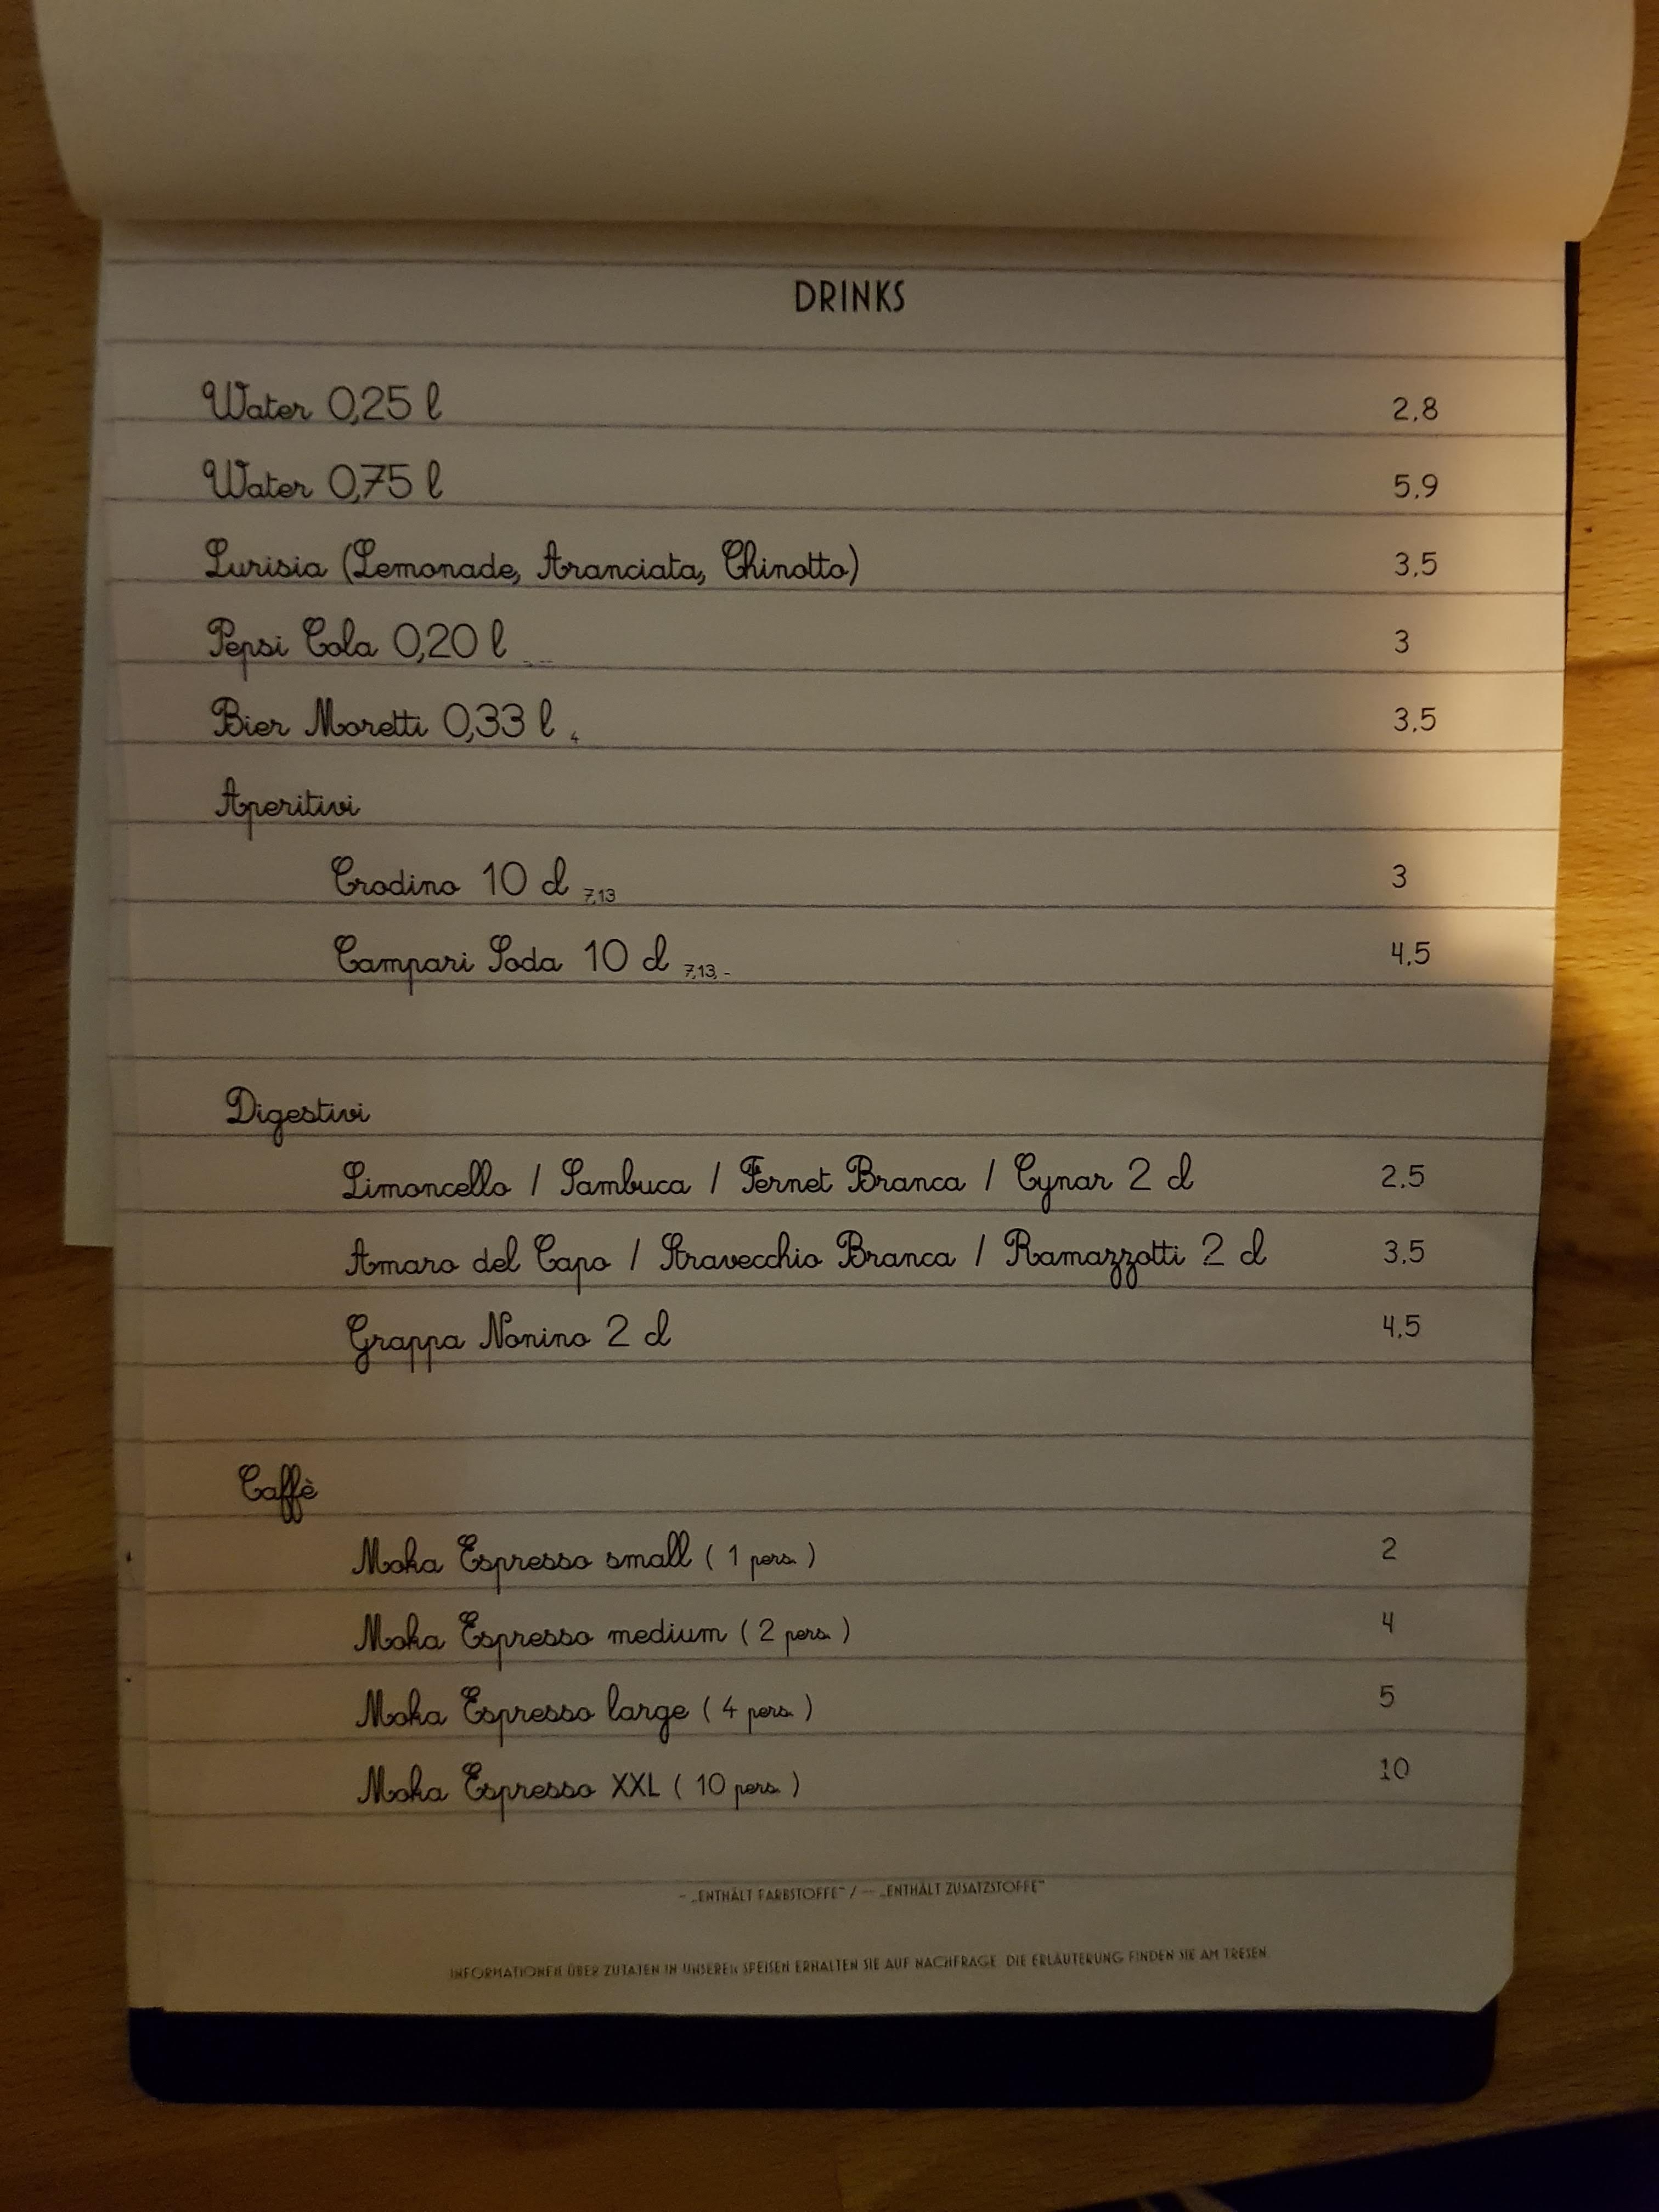 DRINKS
Water 0,25 l 2,8
Water 0,75 l 5,9
Lurisia (Lemonade, Aranciata, Chinotto) 3,5
Pepsi Cola 0,20 l -, -- 3
Bier Moretti 0,33 l 4 3,5
Aperitivi
Crodino 10 cl 7,13 3
Campari Soda 10 cl 7,13, - 4,5
Digestivi
Limoncello / Sambuca / Fernet Branca / Cynar 2 cl 2,5
Amaro del Capo / Stravecchio Branca / Ramazzotti 2 cl 3,5
Grappa Nonino 2 cl 4,5
Caffè
Moka Espresso small ( 1 pers. ) 2
Moka Espresso medium ( 2 pers. ) 4
Moka Espresso large ( 4 pers. ) 5
Moka Espresso XXL ( 10 pers. ) 10
- „ENTHÄLT FARBSTOFFE“ / -- „ENTHÄLT ZUSATZSTOFFE“
INFORMATIONEN ÜBER ZUTATEN IN UNSEREN SPEISEN ERHALTEN SIE AUF NACHFRAGE. DIE ERLÄUTERUNG FINDEN SIE AM TRESEN.